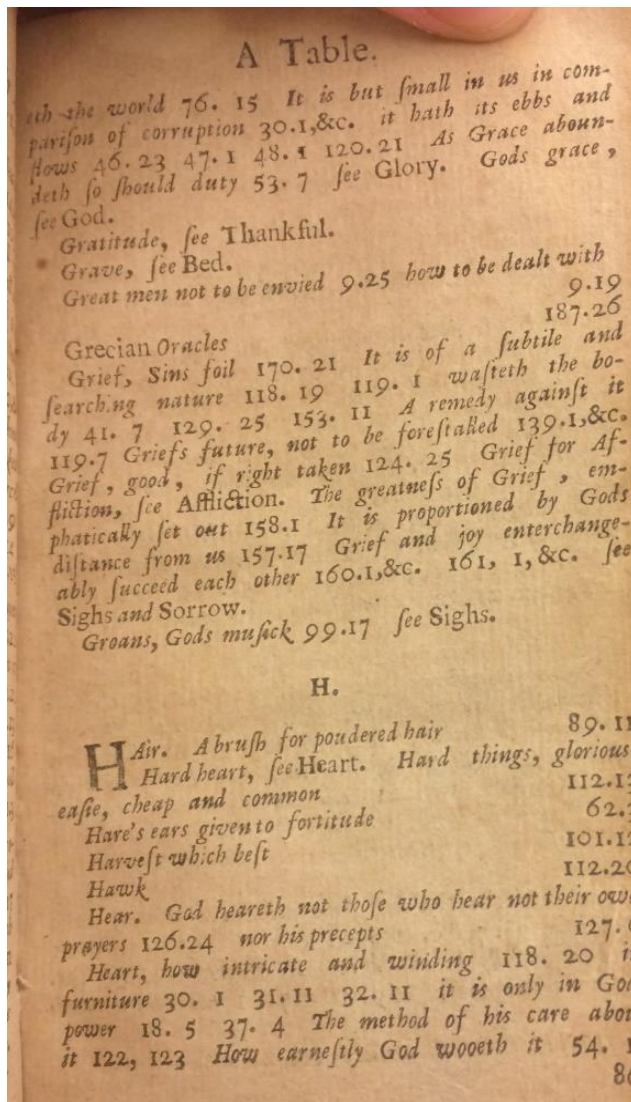 A Table.
eth the world 76. 15 It is but ſmall in us in com-
pariſon of corruption 30.1,&c. it hath its ebbs and
flows 46. 23 47. 1 48. 1 120. 21 As Grace aboun-
deth ſo ſhould duty 53. 7 ſee Glory. Gods grace,
ſee God.
Gratitude, ſee Thankful.
Grave, ſee Bed.
Great men not to be envied 9.25 how to be dealt with
9.19
Grecian Oracles 187.26
Grief, Sins foil 170. 21 It is of a ſubtile and
ſearching nature 118. 19 119. 1 waſteth the bo-
dy 41. 7 129. 25 153. 11 A remedy againſt it
119.7 Griefs future, not to be foreſtalled 139.1,&c.
Grief, good, if right taken 124. 25 Grief for Af-
fliction, ſee Affliction. The greatneſs of Grief, em-
phatically ſet out 158.1 It is proportioned by Gods
diſtance from us 157.17 Grief and joy enterchange-
ably ſucceed each other 160.1,&c. 161, 1, &c. ſee
Sighs and Sorrow.
Groans, Gods muſick 99.17 ſee Sighs.
H.
HAir. A bruſh for poudered hair 89. 11
Hard heart, ſee Heart. Hard things, glorious
eaſie, cheap and common 112.13
Hare's ears given to fortitude 62.
Harveſt which beſt 101.1
Hawk 112.20
Hear. God heareth not thoſe who hear not their ow
prayers 126.24 nor his precepts 127.
Heart, how intricate and winding 118. 20 i
furniture 30. 1 31. 11 32. 11 it is only in God
power 18. 5 37. 4 The method of his care abou
it 122, 123 How earneſtly God wooeth it 54. 1
8